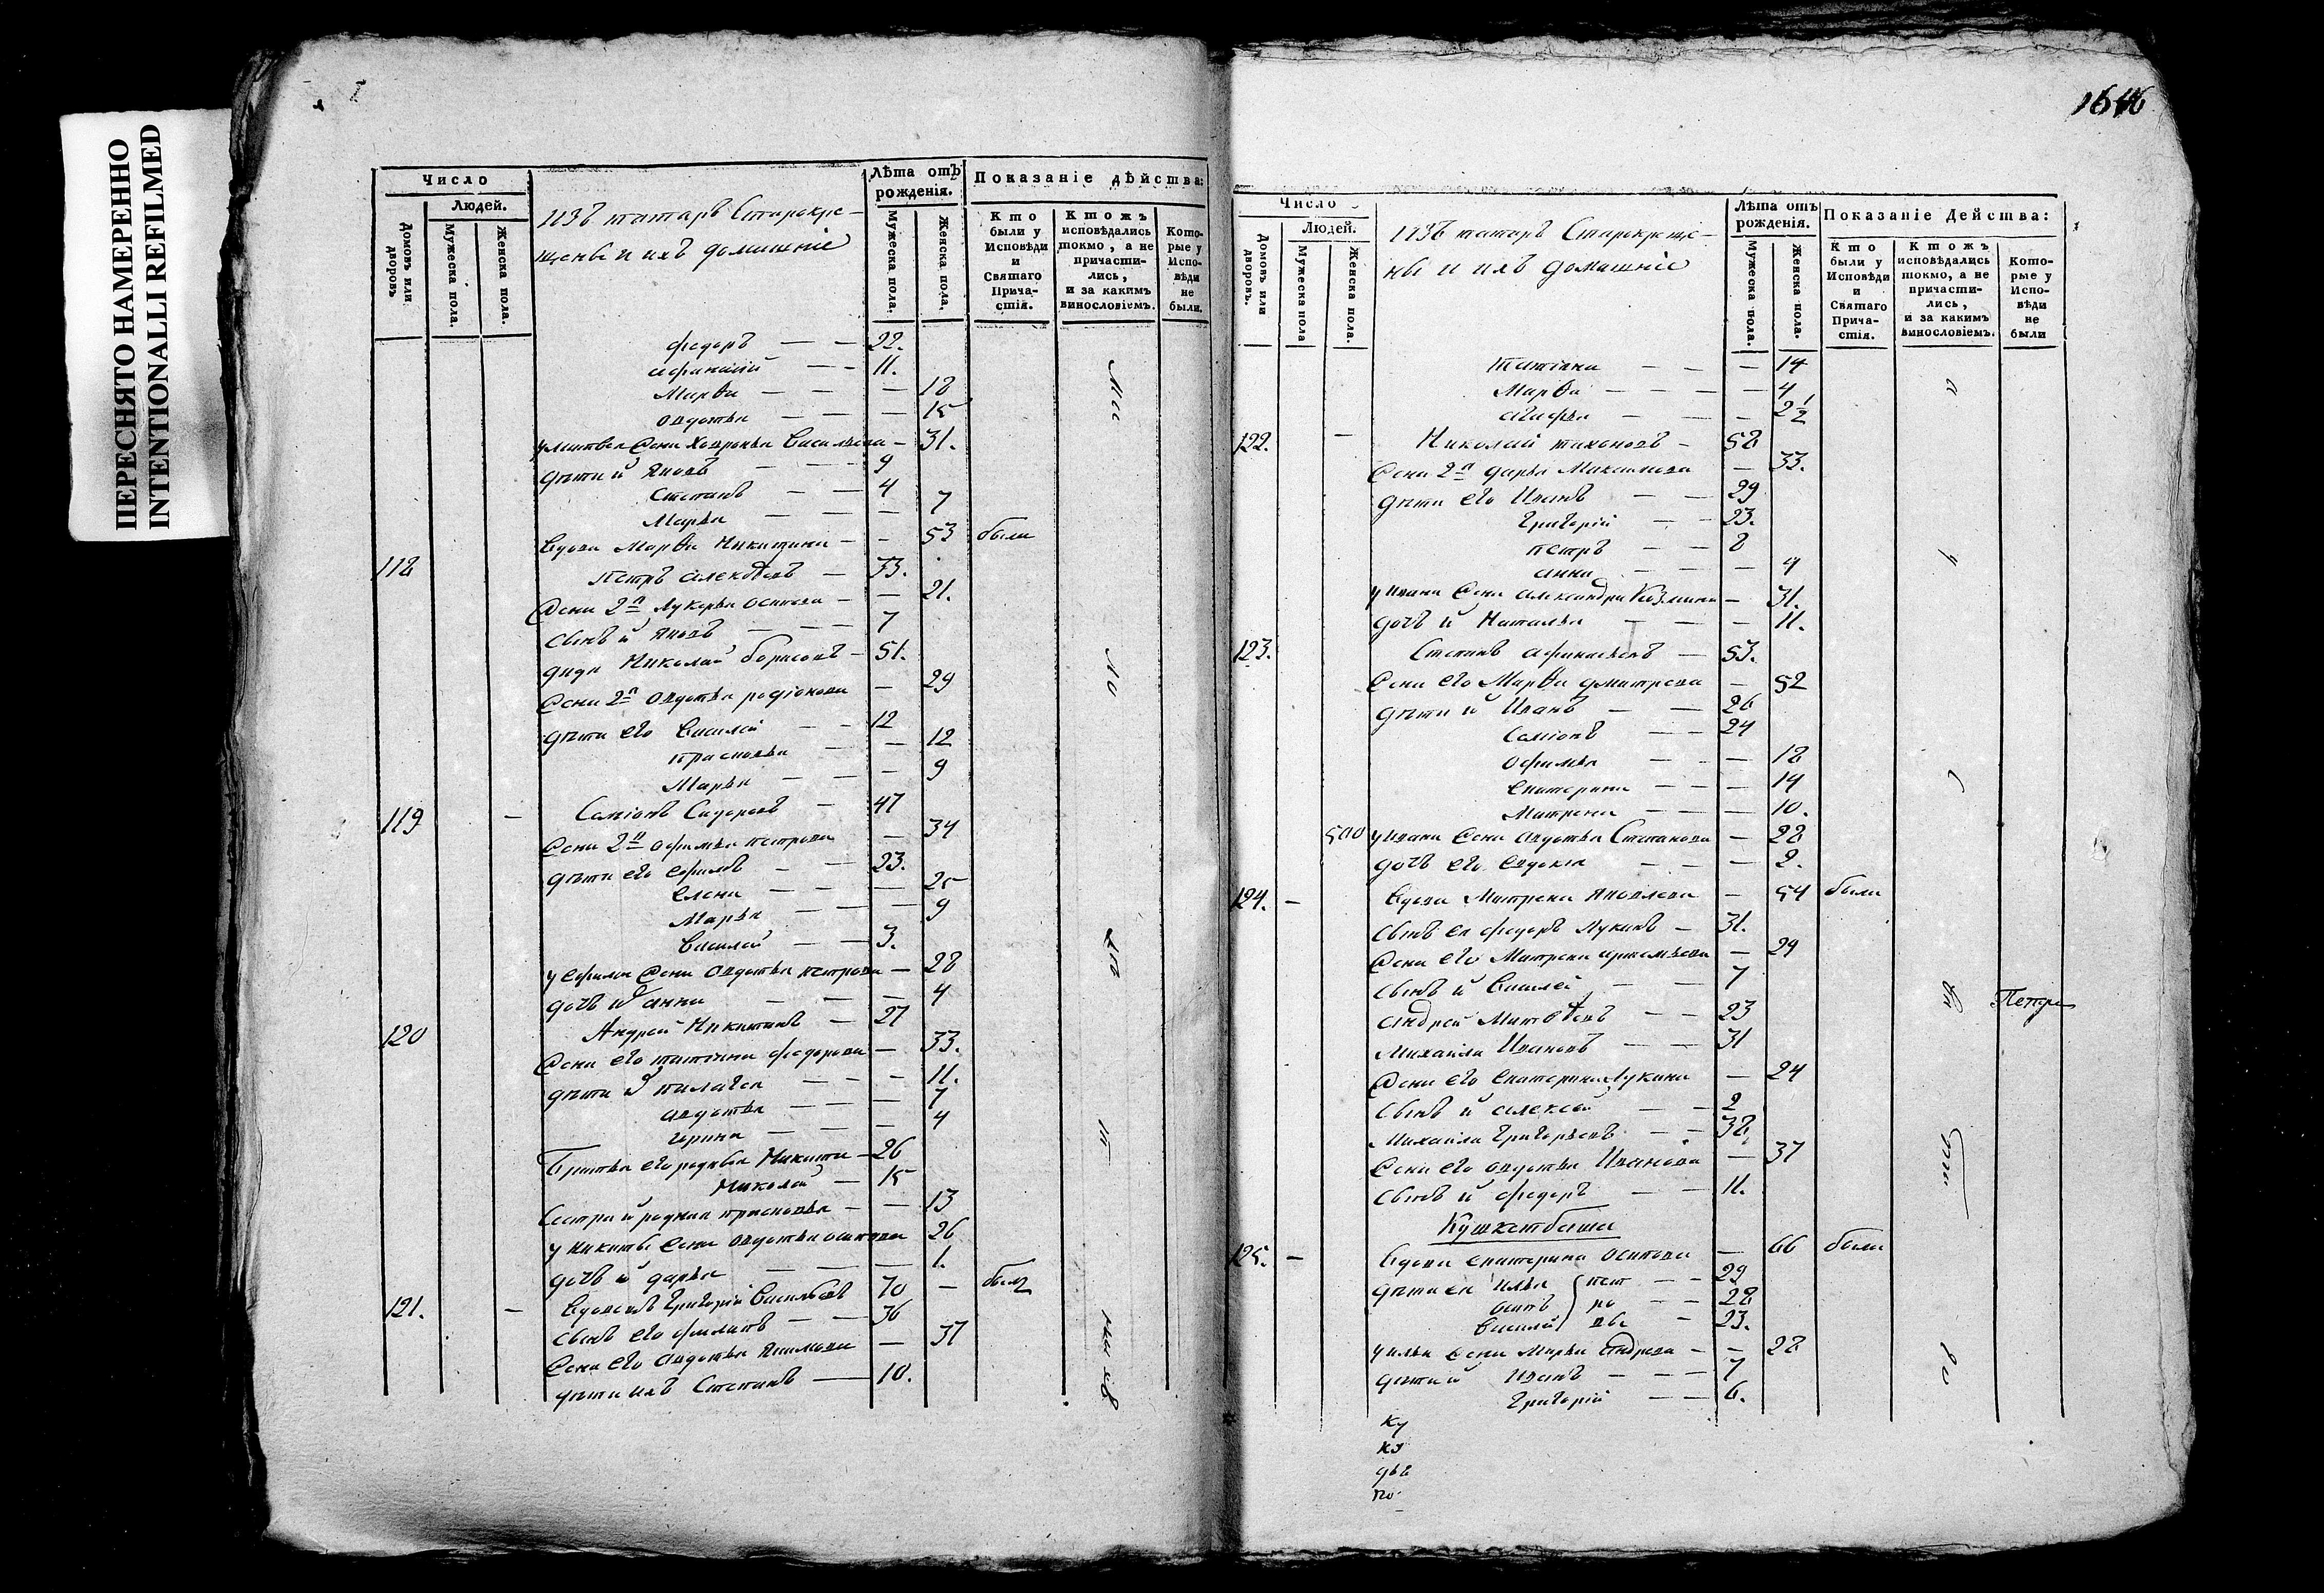 ПЕРЕСНЯТО НАМЕРЕННО
INTENTIONALLI REFILMED
Число
Людей.
Домовъ или дворовъ
Мужеска пола.
Женска пола.
изъ татаръ Старокре-
щены и ихъ домашніе
Лѣта отъ рожденія.
Мужеска пола.
Женска пола.
Показаніе дѣйства:
Кто были у Исповѣди и Святаго Причастія.
Ктожъ исповѣдались токмо, а не причастились, и за какимъ винословіемъ.
Которые у Исповѣди не были.
федоръ — — 22.
афанасій — — 11.
Марѳа — — 18
овдотья — — — 15
у матвея жена Хевронья Васильева — 31.
дѣти и Яковъ — — 9
Степанъ — — 4
Марья — — — 7
вдова Марѳа Никитина — — 53 были
118 Петръ алексѣевъ — 33.
жена 2я Лукерья осипова — — 21.
сынъ и Яковъ — — — 7
дядя Николай борисовъ — 51.
жена 2я овдотья родіонова — 29
дѣти его Василей — — 12
прасковья — — 12
Марья — — — 9
119 — Саміонъ Сидоровъ — 47
жена 2я офимья петрова — 34
дѣти его ефимъ — — 23.
елена — — — 25
Марья — — — 9
Василей — — 3.
у ефима жена овдотья петрова — 28
дочь и анна — — — 4
120 Андрей Никитинъ — 27
жена его татіана федорова — 33.
дѣти и пилагея — — — 11.
авдотья — — — 7
ирина — — — 4
братья его родныя Никита — 26
Николай — 15
сестра и родная прасковья — — 13
у никиты жена овдотья осипова 26
дочь и дарья — — — 1.
121. — Вдовецъ Григорій Васильевъ 70 — былъ
сынъ его филипъ — — 36
жена его авдотья Якимова — 37
дѣти ихъ Степанъ — 10.
1646
Число
Людей.
Домовъ или дворовъ.
Мужеска пола
Женска пола.
изъ татаръ Старокреще-
ны и ихъ домашніе
Лѣта отъ рожденія.
Мужеска пола.
Женска пола.
Показаніе Действа:
Кто были у Исповѣди и Святаго Причастія.
Ктожъ исповѣдались токмо, а не причастились, и за какимъ винословіемъ.
Которые у Исповѣди не были
татіана — — — 14
Марѳа — — — 4
агафья — — — 2½
122. — Николай тихоновъ — 58
жена 2я дарья Максимова — 33.
дѣти его Иванъ — — 29
григорій — — 23.
петръ — — 8
анна — — — 4
у ивана жена александра Козмина — 31.
дочь и Наталья — — — 11.
123. Степанъ афанасьевъ — 53.
жена его Марѳа дмитрева — 52
дѣти и Иванъ — — 26
Саміонъ — — 24
офимья — — — 18
екатерина — — — 14
Матрена — — — 10.
500 у ивана жена овдотья Степанова — 28
дочь его евдокія — — — 2.
124. — вдова Матрена Яковлева — 54 были
сынъ ея федоръ Лукинъ — 31.
жена его Матрена артемьева — 29
сынъ и Василей — — 7
андрей Матвѣевъ — — 23
Михаила Ивановъ — — 31
жена его екатерина Лукина — 24
сынъ и алексей — — 2
Михаила григорьевъ — — 38.
жена его овдотья Иванова — 37
сынъ и федоръ — — 11.
Кушкетбаша
125. — вдова екатерина осипова — 66 были
дѣти ея илья — — 29
осипъ — — 28
Василей — 23.
у ильи жена Марья андреева — — 28
дѣти и Иванъ — — — 7
григорій — — 6.
ку
по